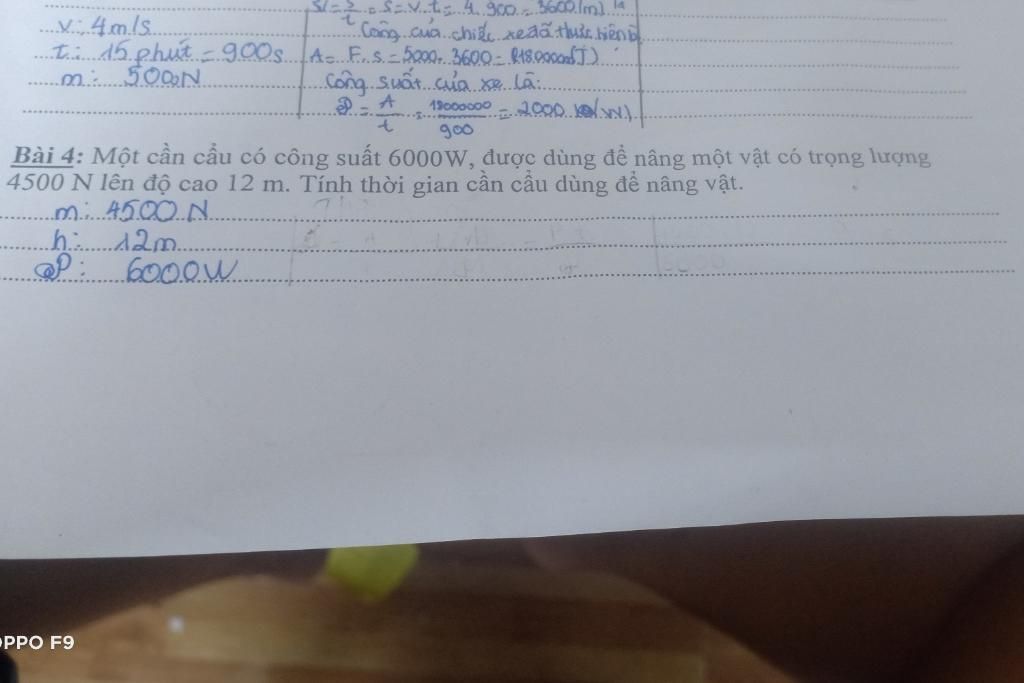 t = S = v.t = 4.900 = 3600 (m)
v: 4m/s
Công của chiếc xe đã thực hiện
t: 15 phút = 900s
A = F.s = 5000. 3600 = 18000000(J)
m: 5000N
Công suất của xe là:
P = A/t = 18000000/900 = 2000 (W)
Bài 4: Một cần cẩu có công suất 6000W, được dùng để nâng một vật có trọng lượng
4500 N lên độ cao 12 m. Tính thời gian cần cẩu dùng để nâng vật.
m: 4500N
h: 12m
P: 6000W
OPPO F9